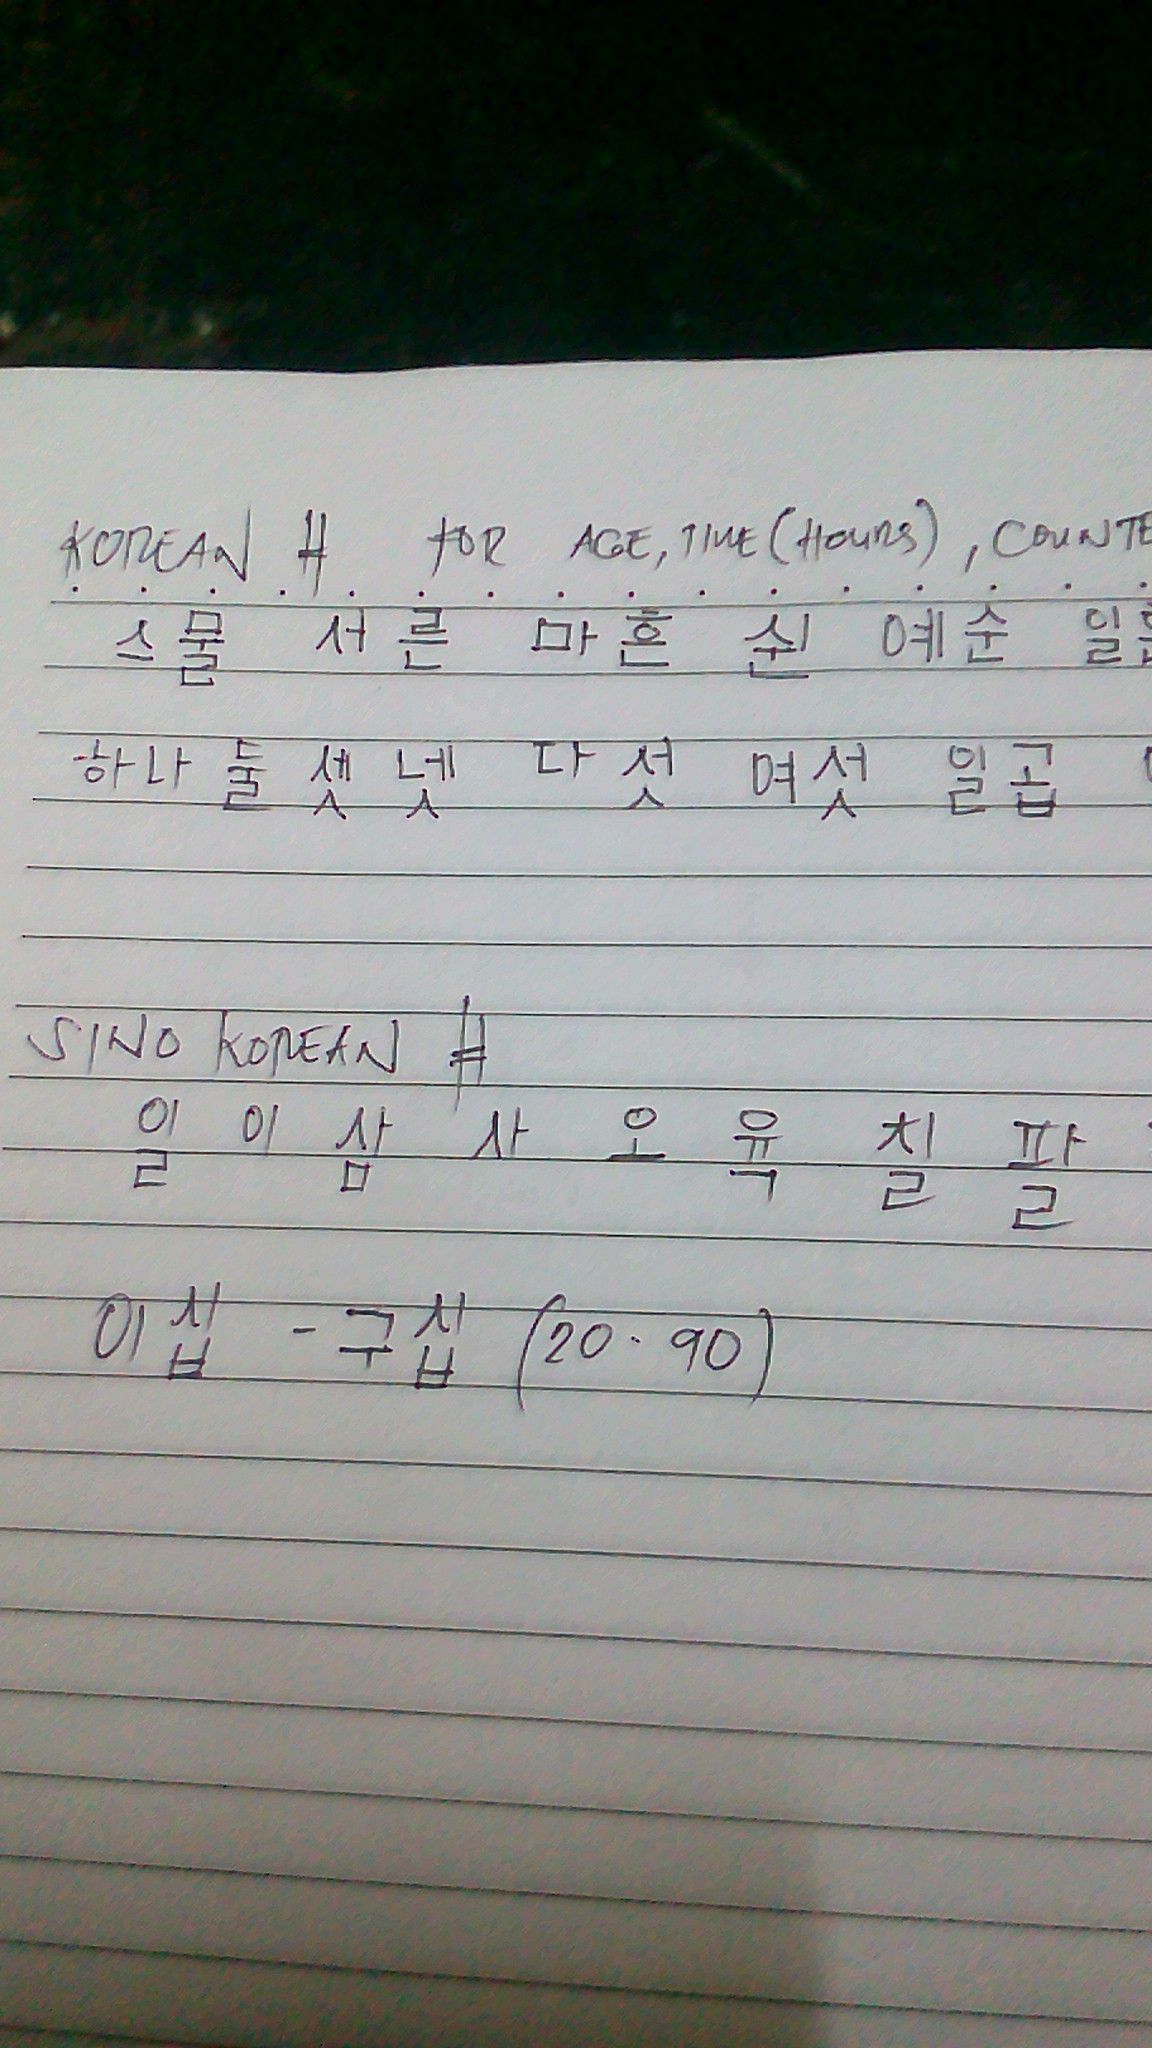 KOREAN # FOR AGE, TIME (HOURS), COUNTE
스물 서른 마흔 쉰 예순 일흔
하나 둘 셋 넷 다섯 여섯 일곱
SINO KOREAN #
일 이 삼 사 오 육 칠 팔
이십 - 구십 (20 - 90)